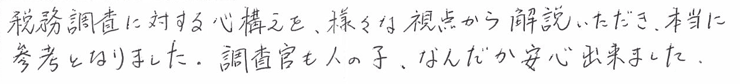 税務調査に対する心構えを、様々な視点から解説いただき、本当に
参考となりました。調査官も人の子、なんだか安心出来ました.